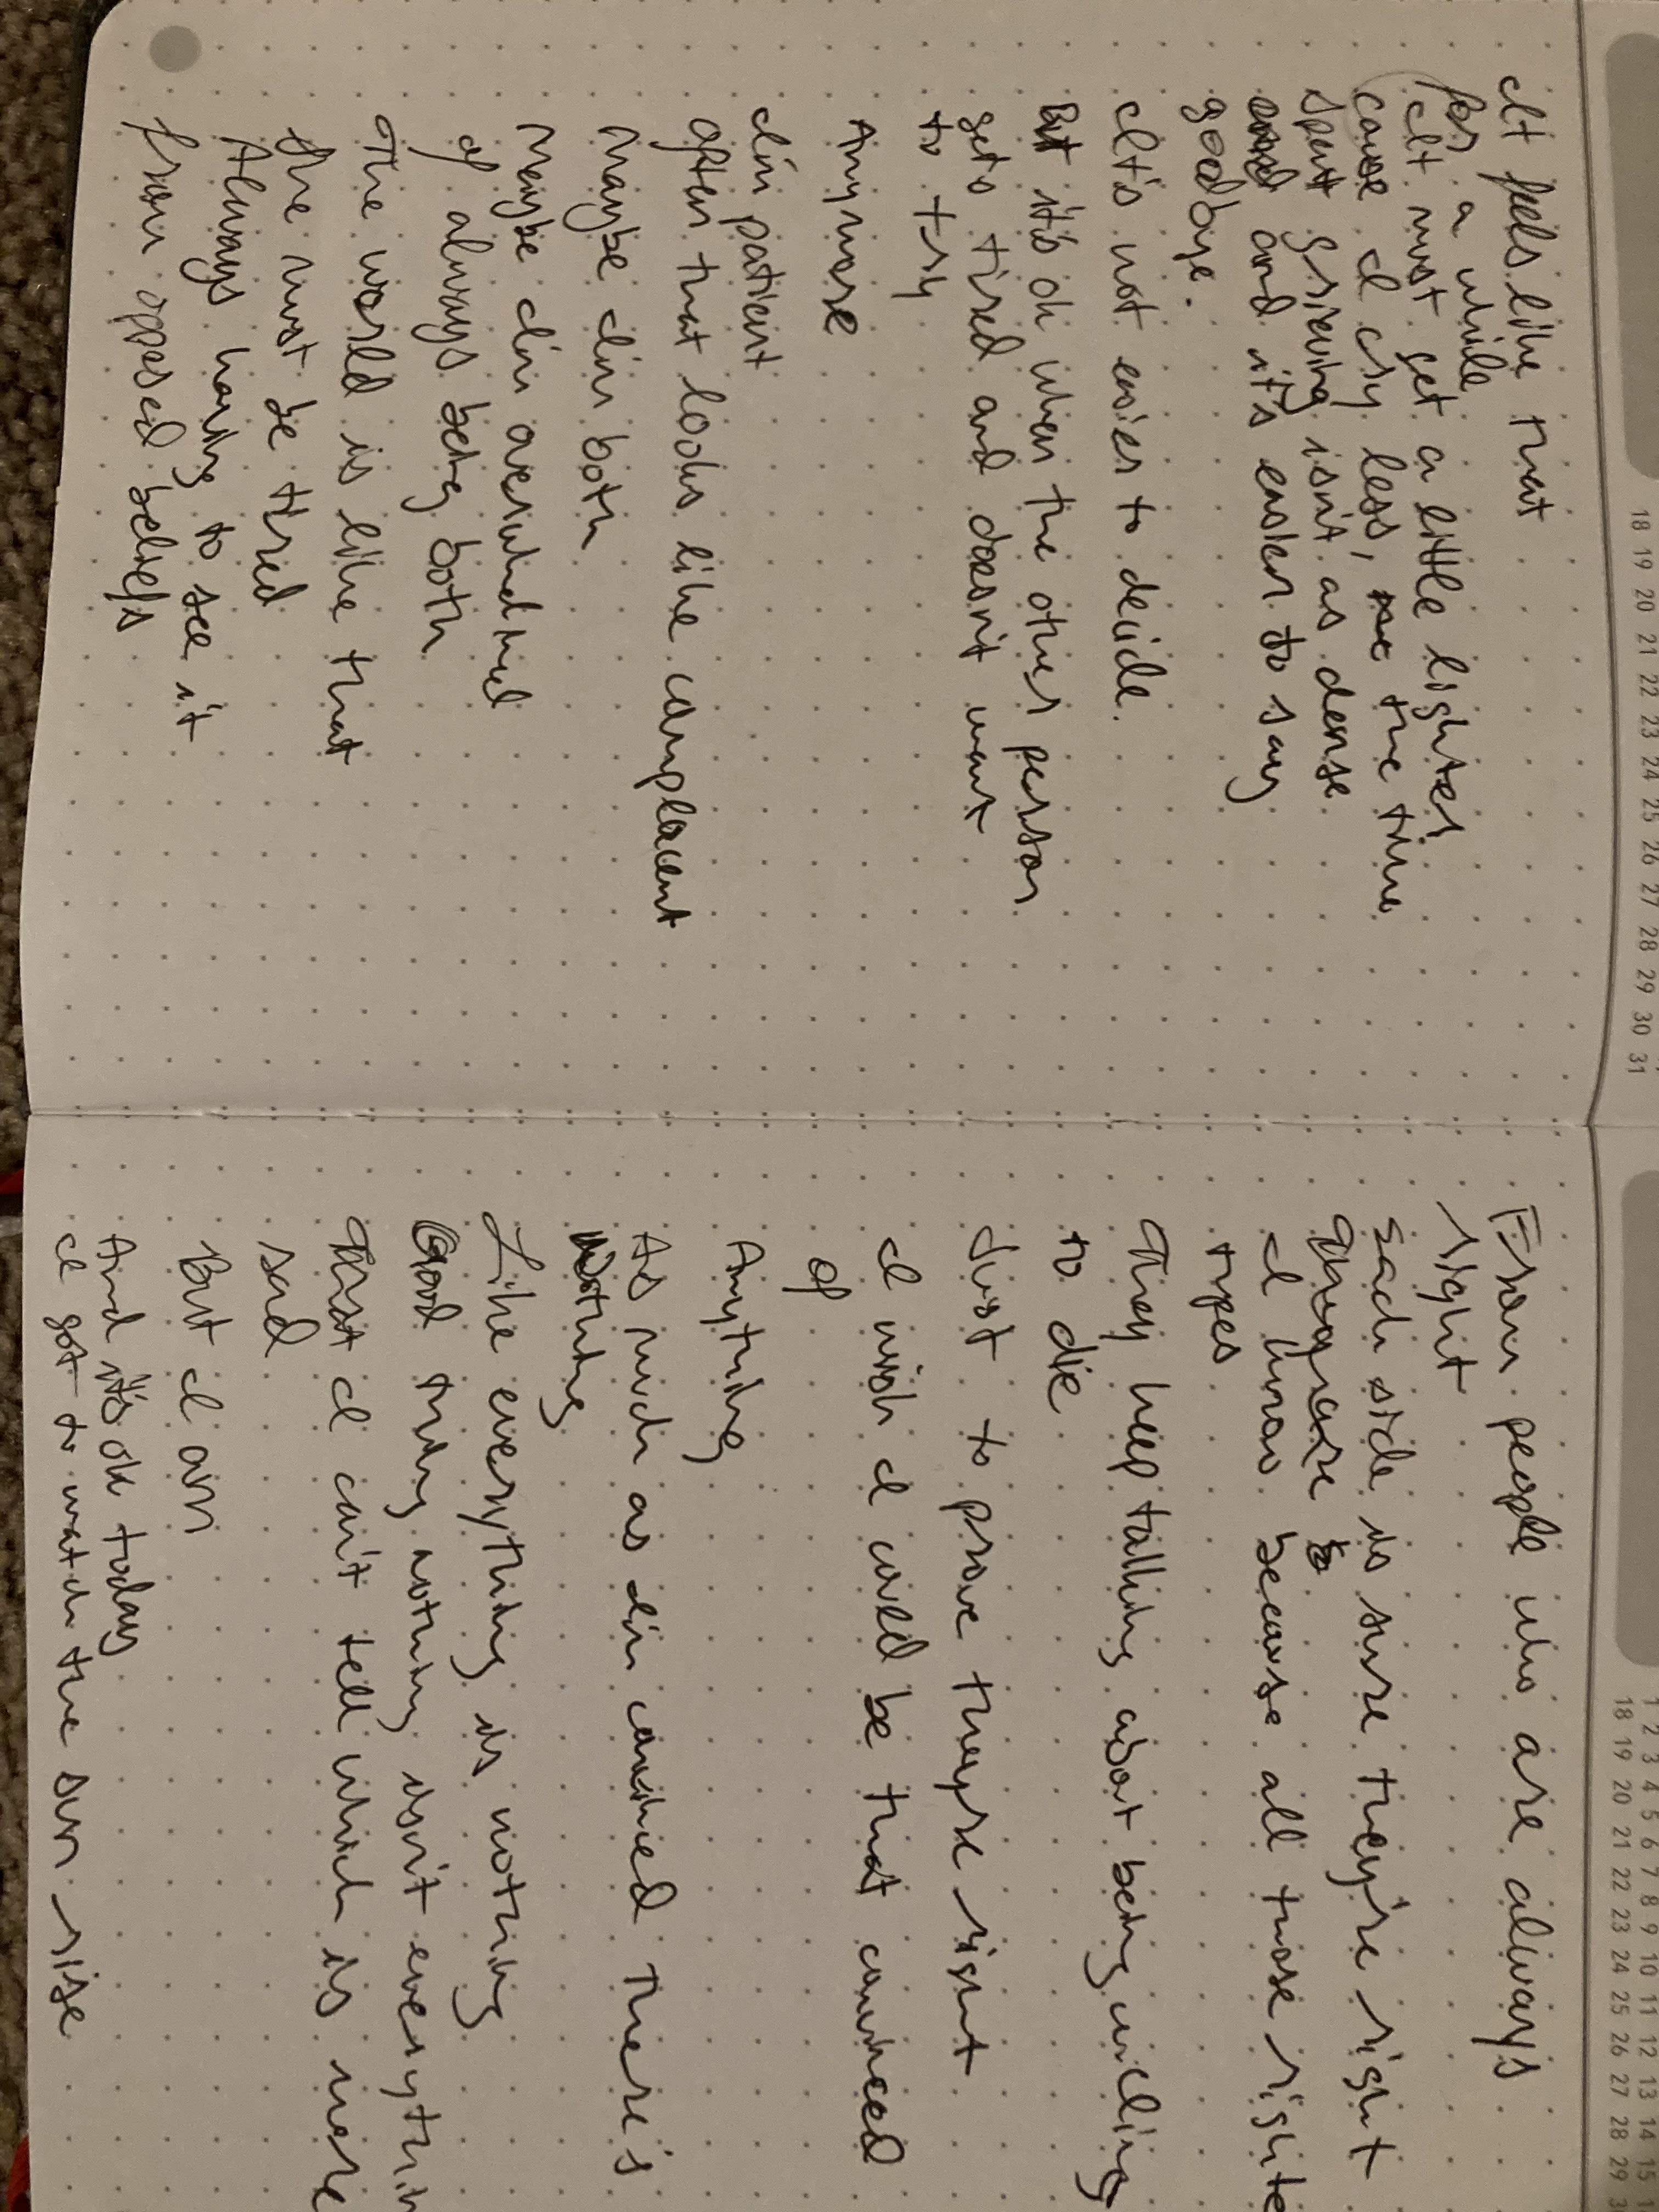 18 19 20 21 22 23 24 25 26 27 28 29 30 31
It feels like that
for a while
It must get a little lighter
cause I cry less, the time
spent grieving isn't as dense
and it's easier to say
goodbye.
It's not easier to decide.
But it's ok when the other person
gets tired and doesn't want
to try
Anymore
I'm patient
often that looks like complacent
Maybe I'm both
Maybe I'm overwhelmed
of always being both
The world is like that
She must be tired
Always having to see it
from opposed beliefs
1 2 3 4 5 6 7 8 9 10 11 12 13 14 15
18 19 20 21 22 23 24 25 26 27 28 29
From people who are always
right
Each side is sure they're right
I know because all those righte
types
They keep talking about being willing
to die
Just to prove theyre right
I wish I could be that convinced
of
Anything
As much as I'm convinced there's
Nothing
Like everything is nothing
Good thing nothing isn't everythin
But I can't tell which is more
sad
But I am
And it's ok today
I got to watch the sun rise